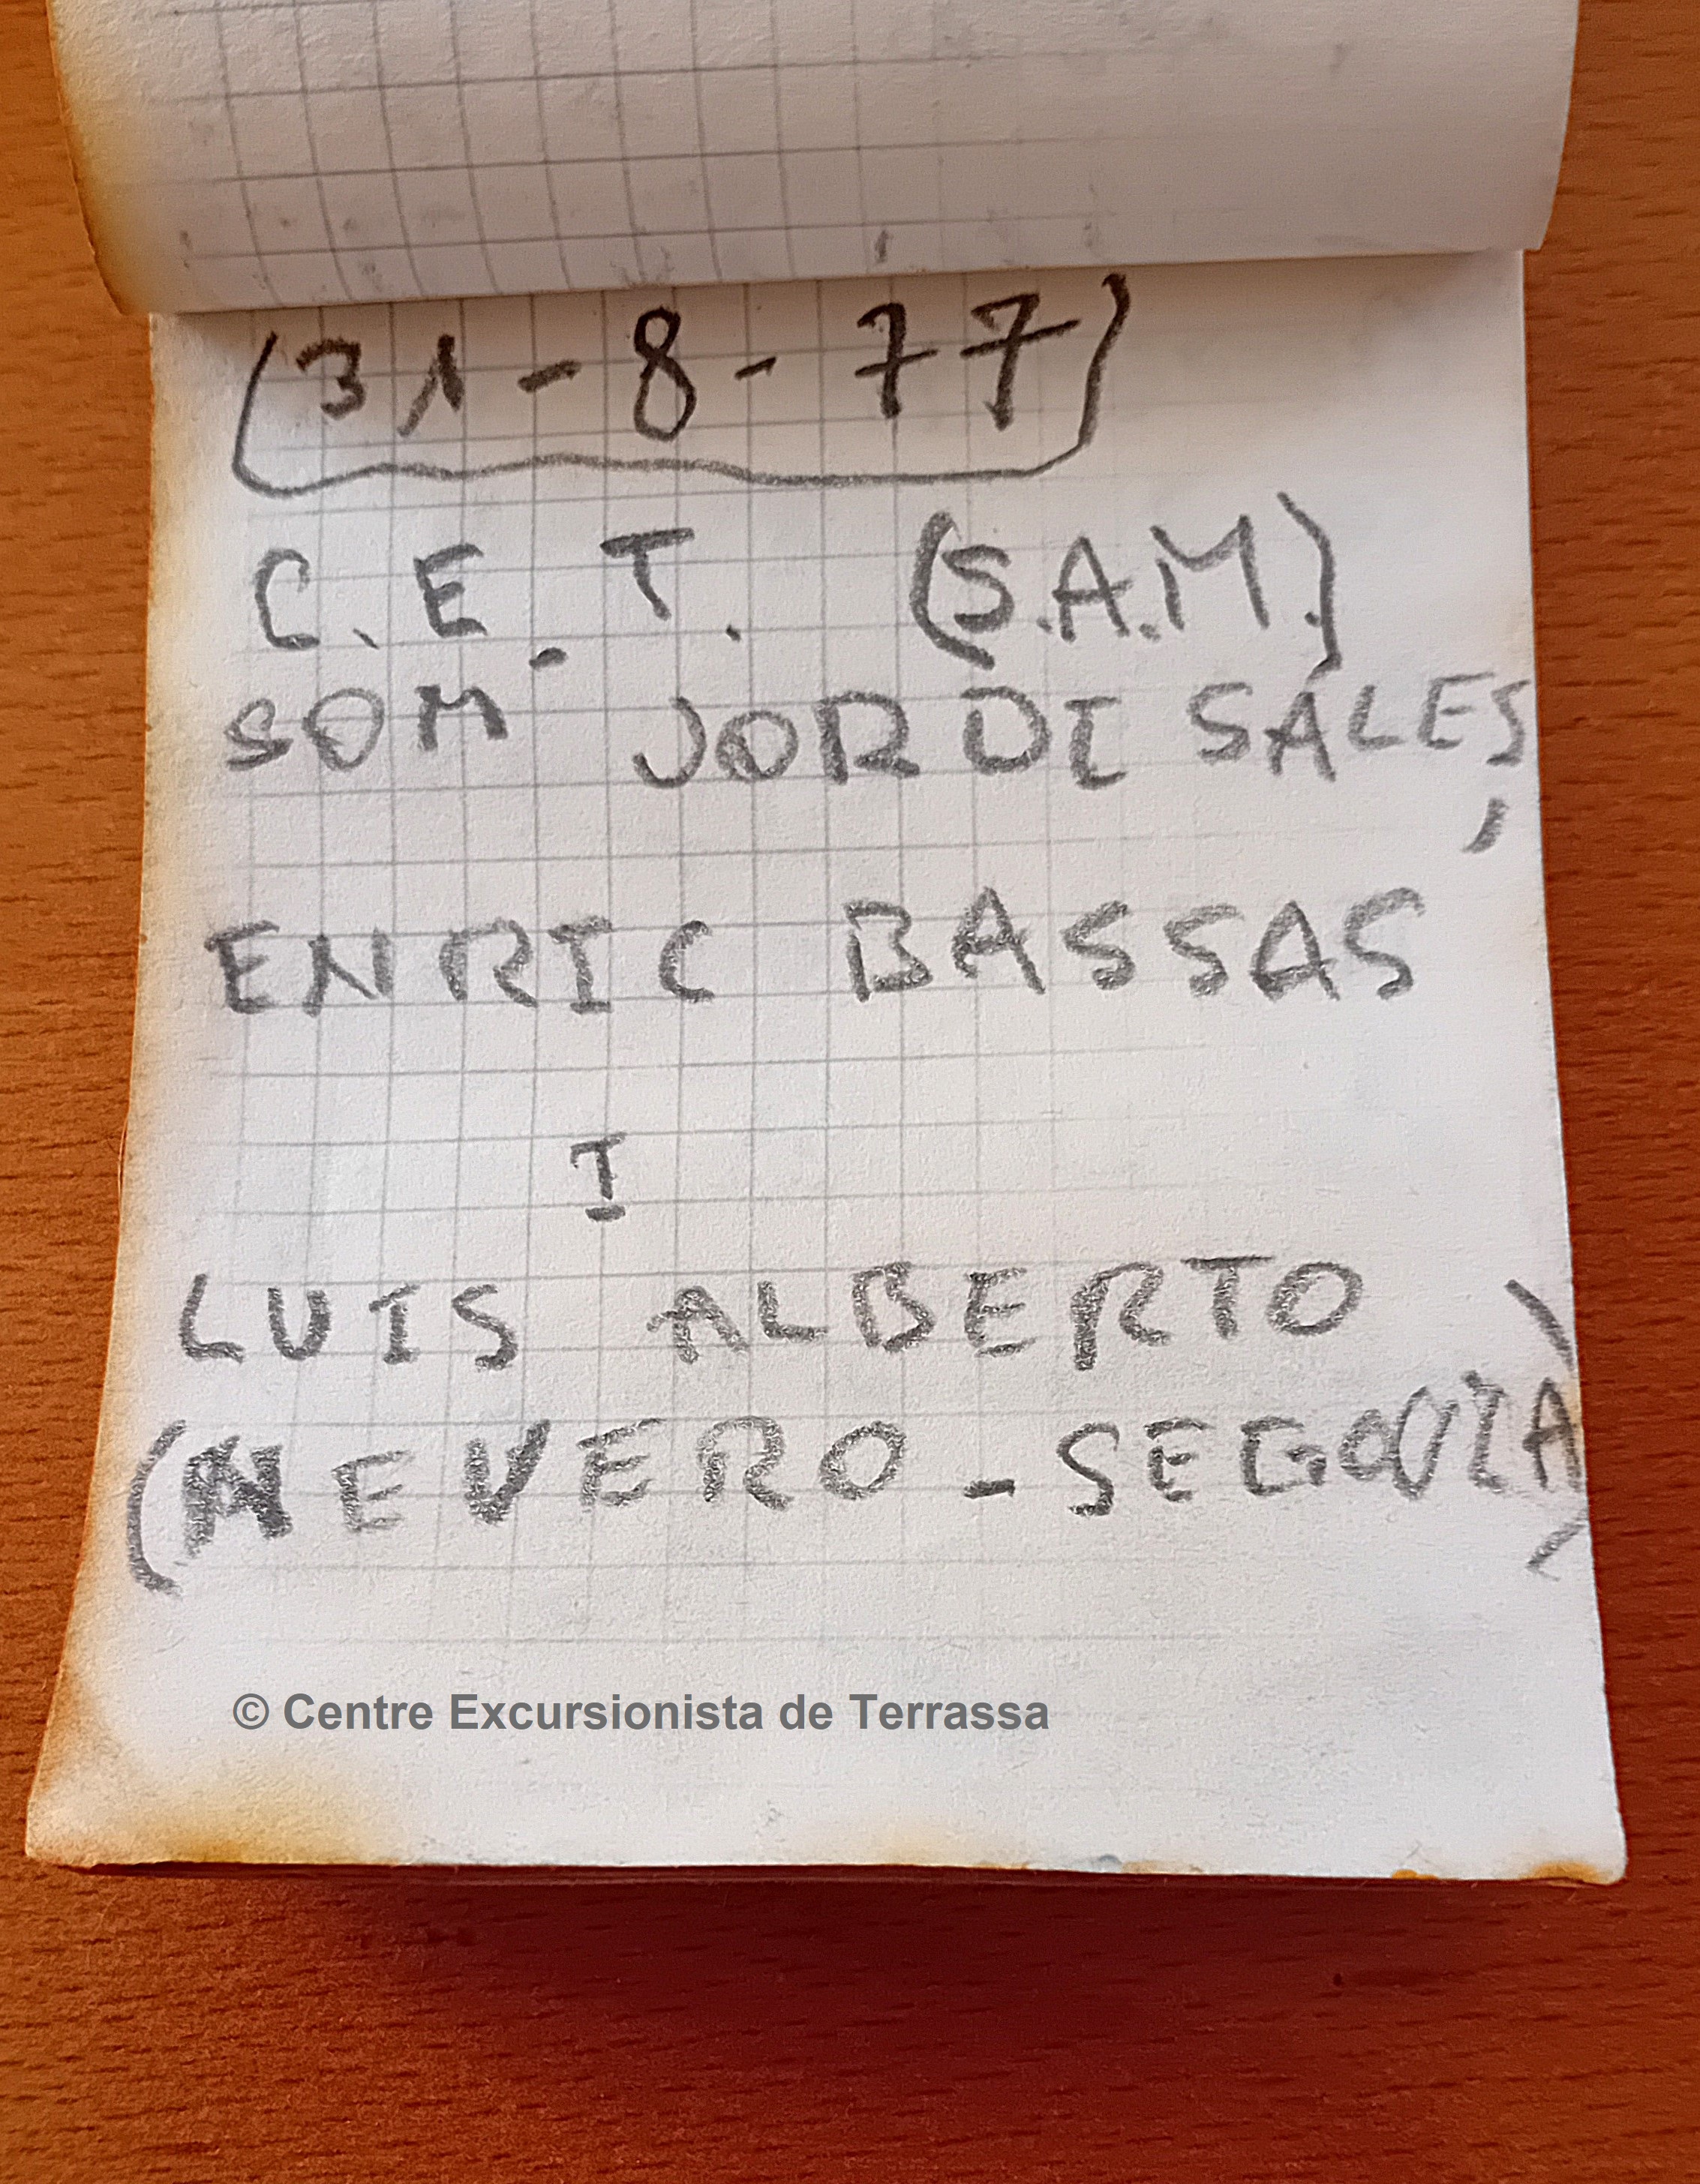 (31-8-77)
C.E.T. (S.A.M.)
SOM JORDI SALES,
ENRIC BASSAS
I
LUIS ALBERTO
(NEVERO - SEGOVIA)
© Centre Excursionista de Terrassa